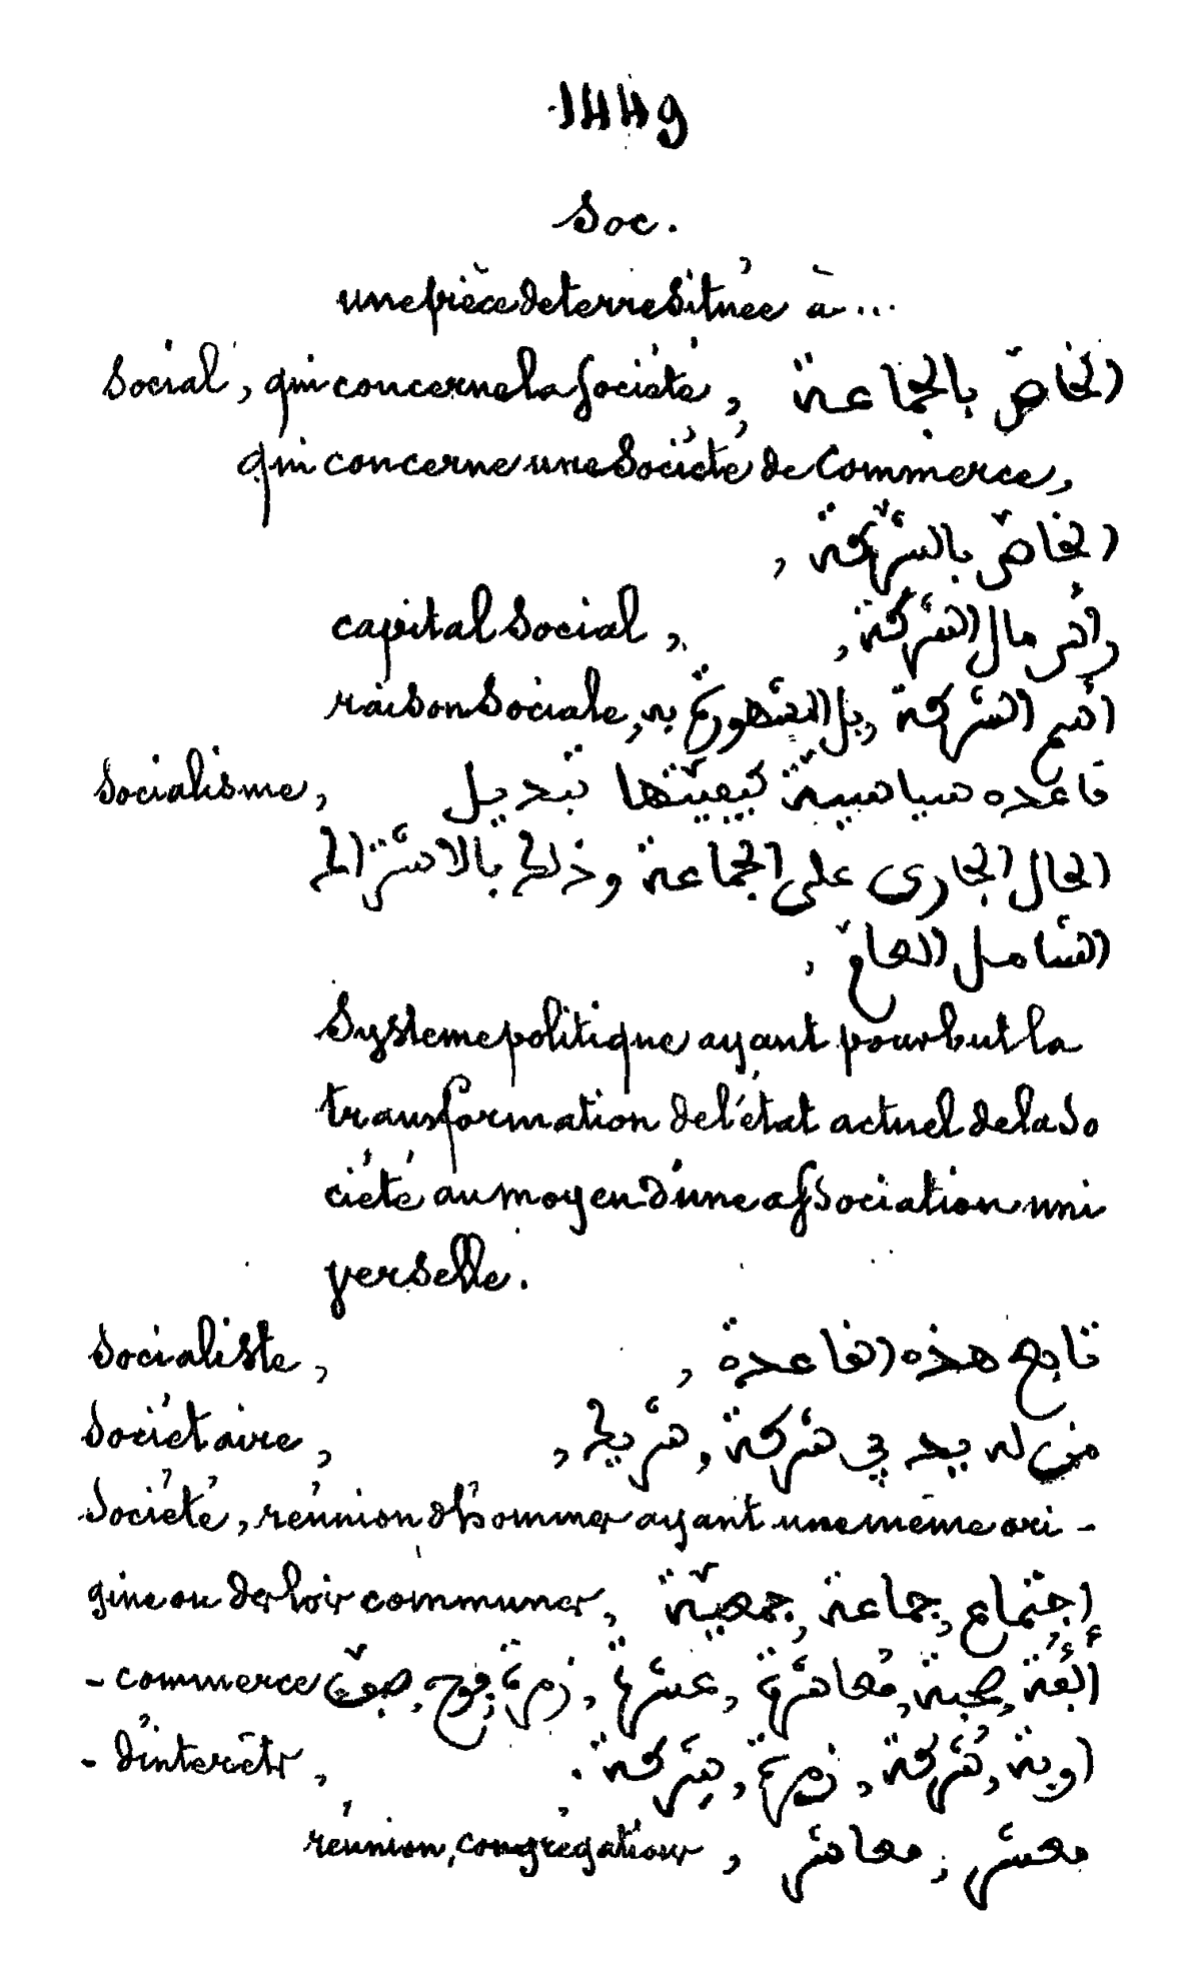 1449
Soc.
une pièce de terre située à...
Social, qui concerne la société, الخاصّ بالجماعة
qui concerne une société de commerce,
الخاصّ بالشّركة,
capital social, رأس مال الشركة,
raison sociale, اسم الشركة المشهورة به,
Socialisme, قاعدة سياسية كيفيّتها تبديل
الحال الجارى على الجماعة وذلك بالاشتراك
الشامل العامّ,
Systeme politique ayant pour but la
transformation de l'état actuel de la so
ciété au moyen d'une association uni
verselle.
Socialiste, تابع هذه القاعدة,
Sociétaire, من له يد في شركة, شريك,
Société, réunion d'hommes ayant une même ori-
gine ou des lois communes, إجتماع, جماعة, جمعيّة
- commerce أُلفة, صحبة, مُعاشرة, عشرة, زمرة, فوج,
- d'intérêts, شركة, زمرة, شركة.
réunion, congrégation, معشر, معاشر